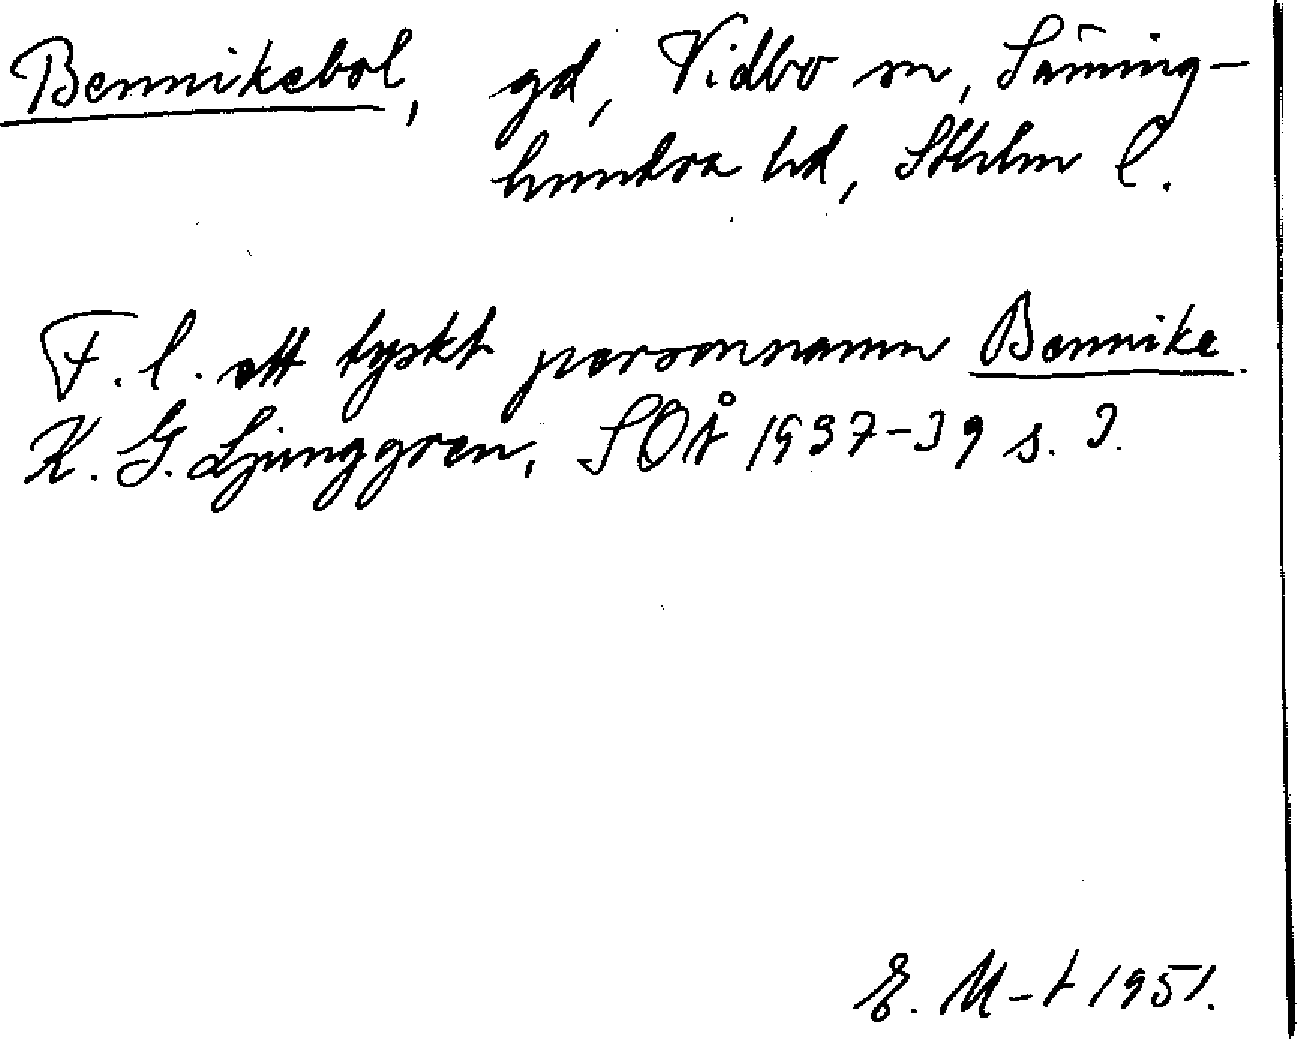 Bennikebol, gd, Vidbo sn, Säming-
hundra hd, Sthlm l.
F.l. ett tyskt personnamn Bennike.
K. G. Ljunggren, SOÅ 1937-39 s. 3.
E. M-t 1951.